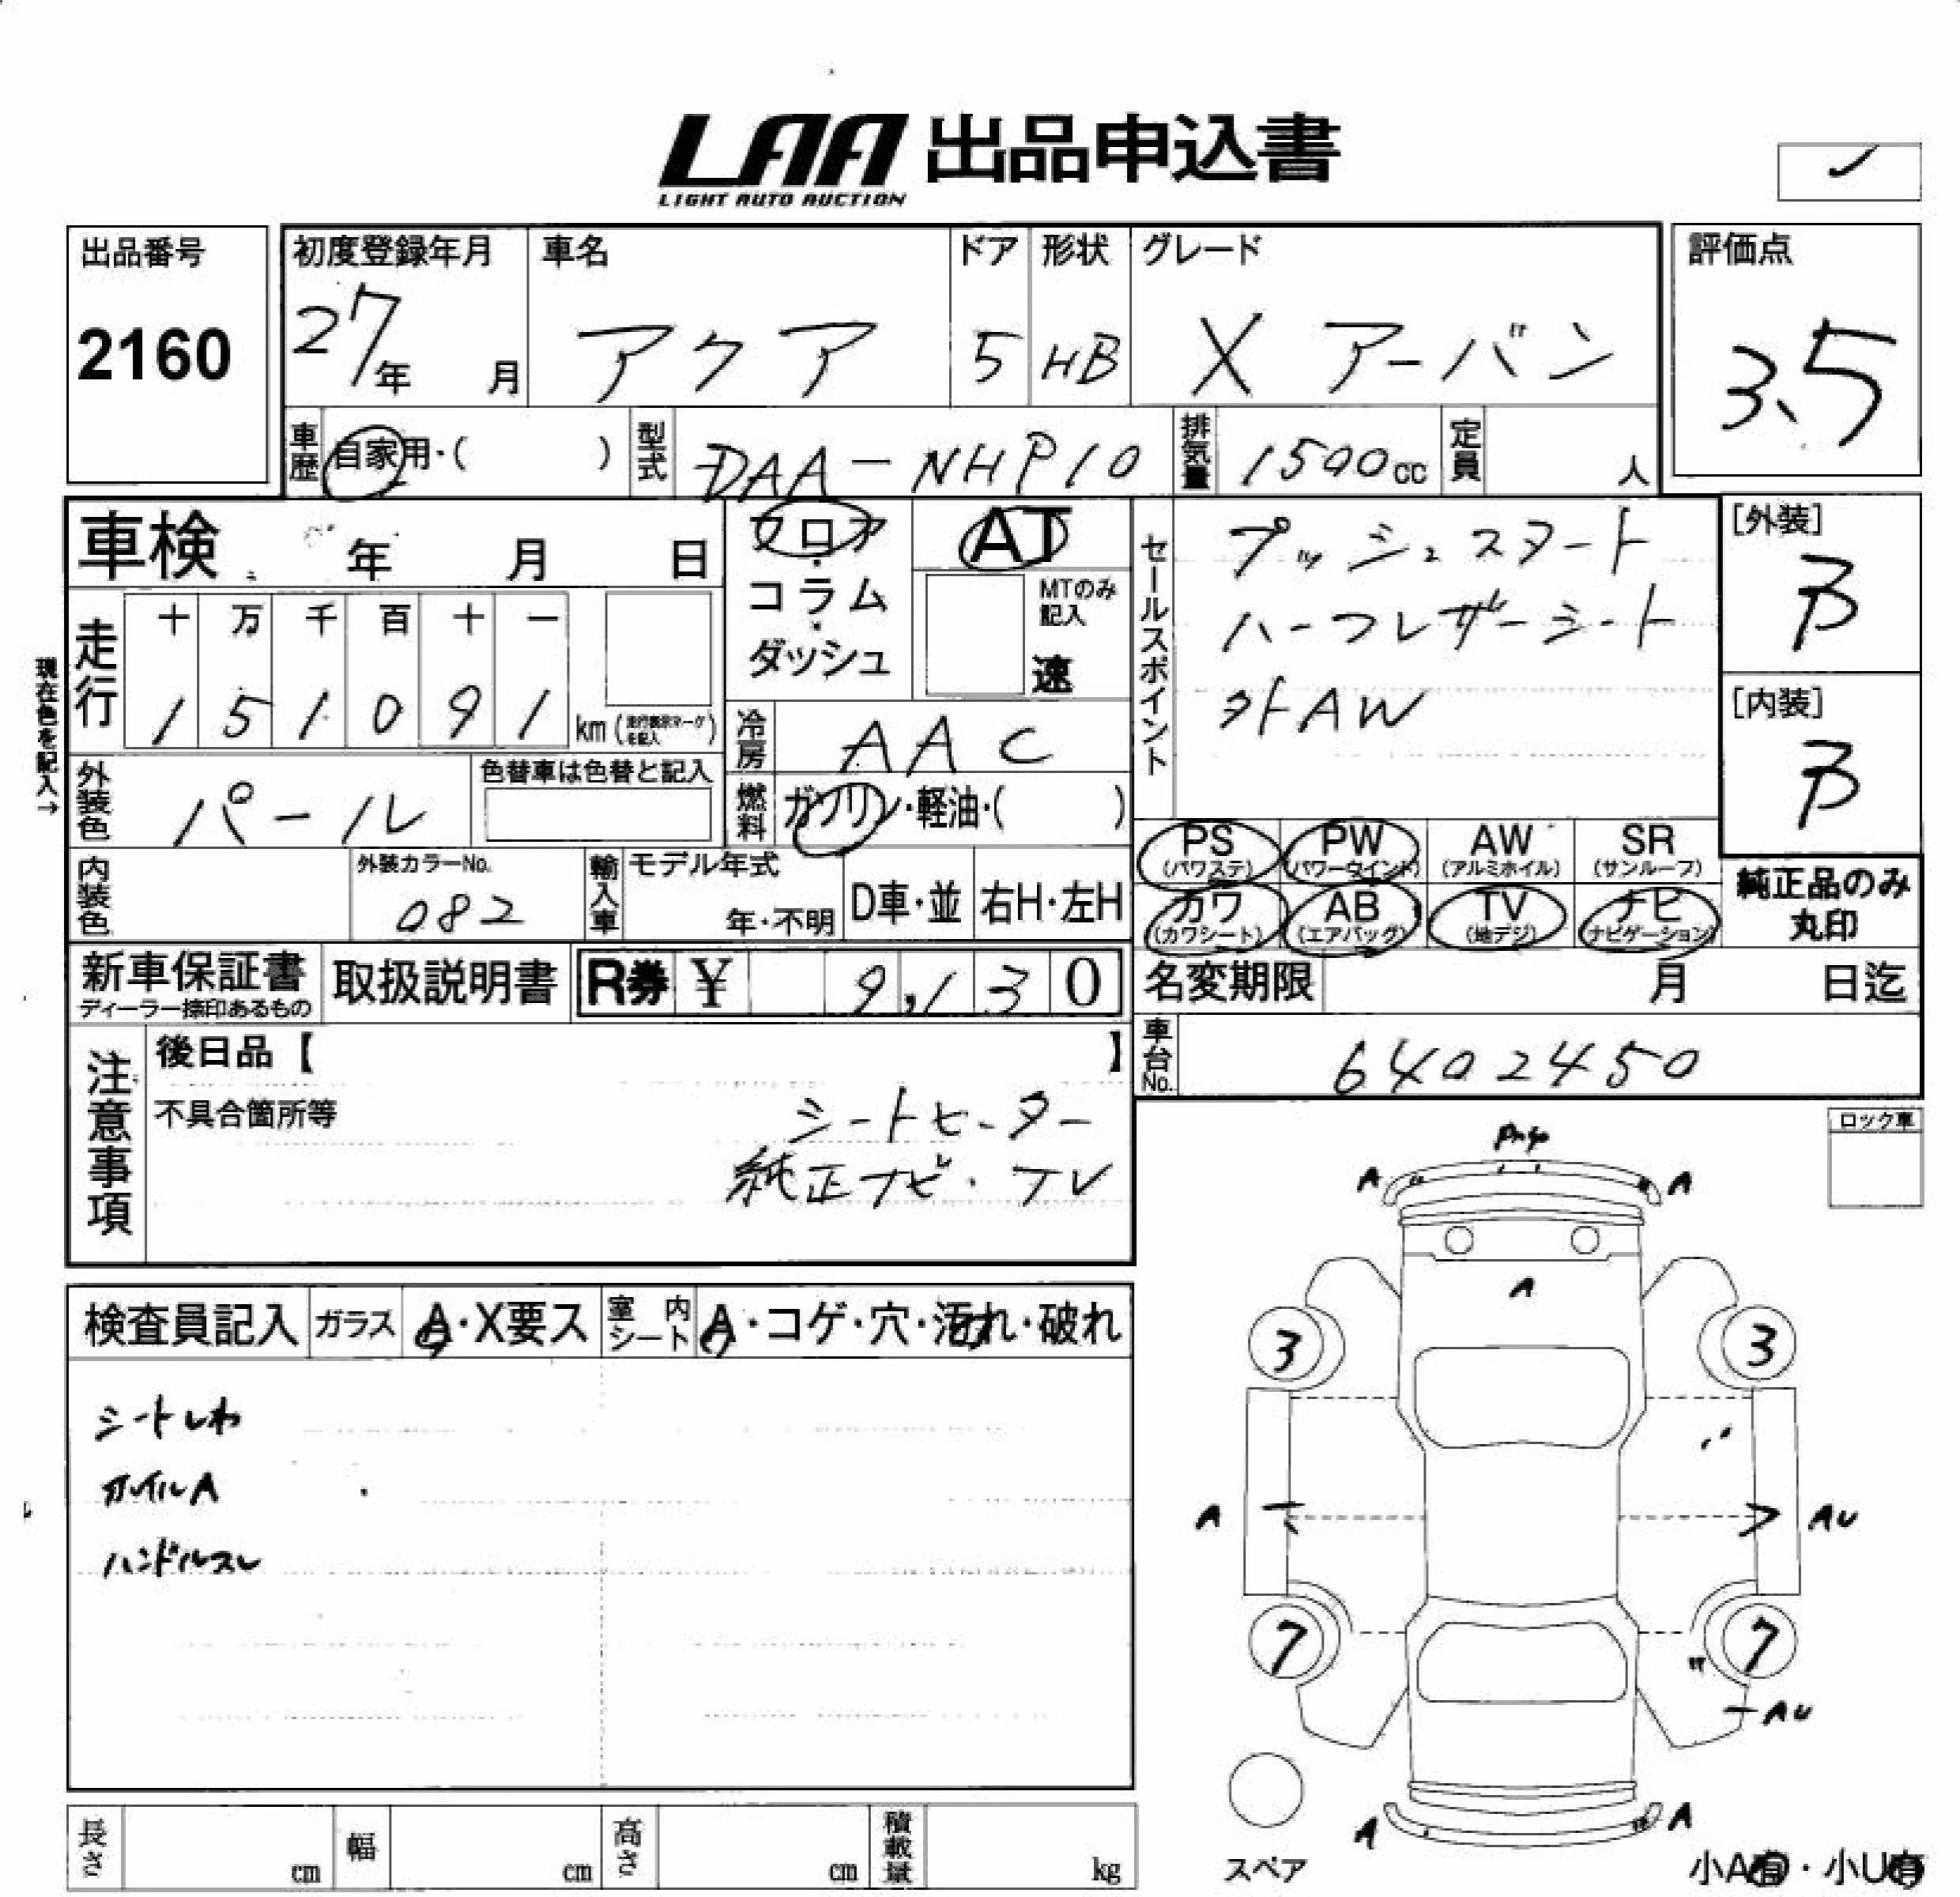 LAA 出品申込書
LIGHT AUTO AUCTION
出品番号
2160
初度登録年月
27年 月
車名
アクア
ドア
5
形状
HB
グレード
X アーバン
評価点
3.5
車歴 自家用・( )
型式 DAA-NHP10
排気量 1500cc
定員 人
車検 年 月 日
フロア・コラム・ダッシュ
AT
MTのみ記入
速
セールスポイント
プッシュスタート
ハーフレザーシート
外AW
[外装]
B
[内装]
B
現在色を記入→
走行 十 万 千 百 十 一
1 5 1 0 9 1 km
冷房 AAC
外装色 パール
色替車は色替と記入
燃料 ガソリン・軽油・( )
PS (パワステ)
PW
AW (アルミホイル)
SR (サンルーフ)
カワ (カワシート)
AB (エアバッグ)
TV (地デジ)
ナビ (ナビゲーション)
純正品のみ
丸印
内装色
外装カラーNo.
082
輸入車 モデル年式
年・不明
D車・並 右H・左H
新車保証書
ディーラー捺印あるもの
取扱説明書
R券 ¥ 9,130
名変期限 月 日迄
車台No. 6402450
注意事項
後日品【 】
不具合箇所等
シートヒーター
純正ナビ・TV
ロック車
検査員記入 ガラス A・X要ス 室内シート A・コゲ・穴・汚れ・破れ
シートしわ
ホイルA
ハンドルスレ
A A
A
3 3
A AU
7 7
AU
A A
スペア
長さ cm 幅 cm 高さ cm 積載量 kg
小A有・小U有